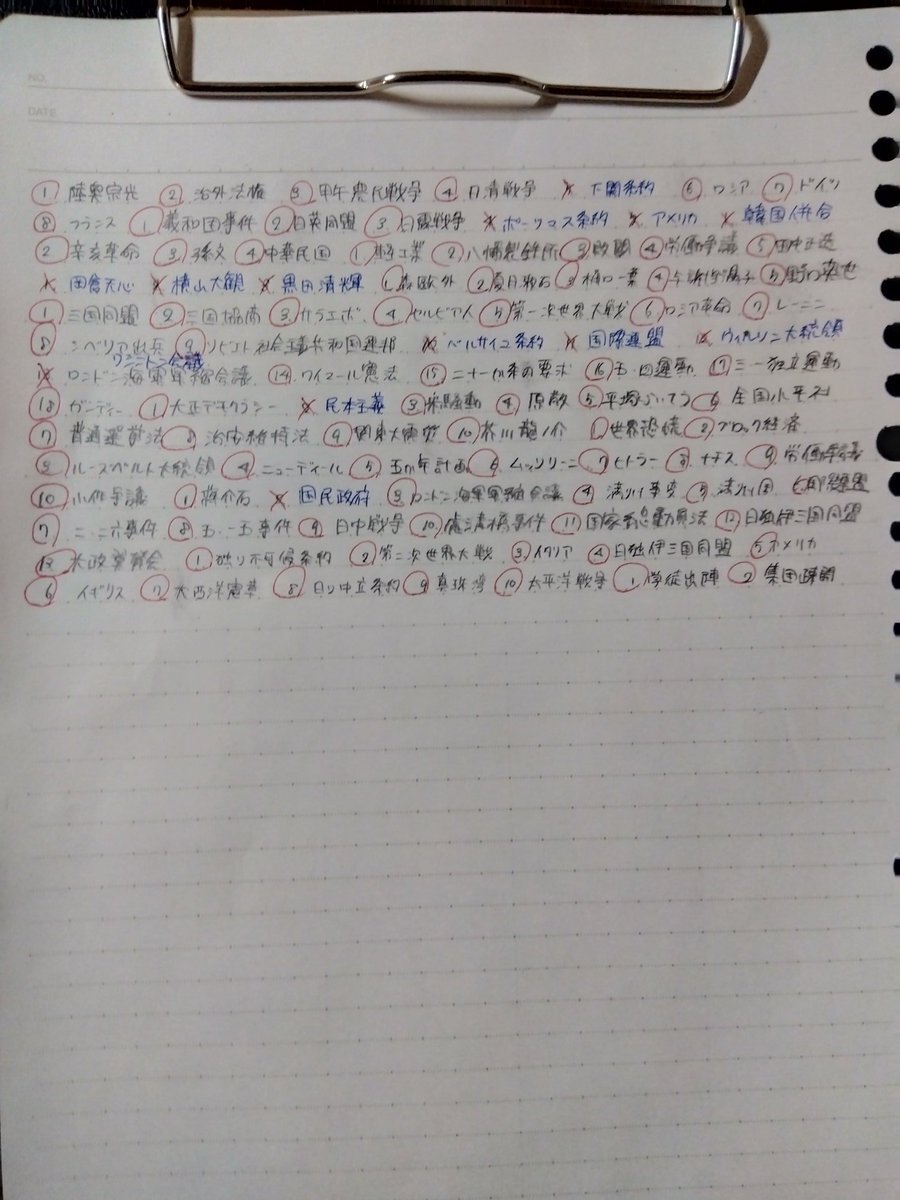 NO.
DATE
① 陸奥宗光 ② 治外法権 ③ 甲午農民戦争 ④ 日清戦争 × 下関条約 ⑥ ロシア ⑦ ドイツ
⑧ フランス ① 義和団事件 ② 日英同盟 ③ 日露戦争 × ポーツマス条約 × アメリカ × 韓国併合
② 辛亥革命 ③ 孫文 ④ 中華民国 ① 軽工業 ② 八幡製鉄所 ③ 財閥 ④ 労働争議 ⑤ 田中正造
× 岡倉天心 × 横山大観 × 黒田清輝 ① 森鷗外 ② 夏目漱石 ③ 樋口一葉 ④ 与謝野晶子 ⑤ 野口英世
① 三国同盟 ② 三国協商 ③ サラエボ ④ セルビア人 ⑤ 第一次世界大戦 ⑥ ロシア革命 ⑦ レーニン
⑧ シベリア出兵 ⑨ ソビエト社会主義共和国連邦 × ベルサイユ条約 × 国際連盟 × ウィルソン大統領
ワシントン会議
× ロンドン海軍軍縮会議 ⑭ ワイマール憲法 ⑮ 二十一か条の要求 ⑯ 五・四運動 ⑰ 三・一独立運動
⑱ ガンディー ① 大正デモクラシー × 民本主義 ③ 米騒動 ④ 原敬 ⑤ 平塚らいてう ⑥ 全国水平社
⑦ 普通選挙法 ⑧ 治安維持法 ⑨ 関東大震災 ⑩ 芥川龍ノ介 ① 世界恐慌 ② ブロック経済
③ ルーズベルト大統領 ④ ニューディール ⑤ 五か年計画 ⑥ ムッソリーニ ⑦ ヒトラー ⑧ ナチス ⑨ 労働争議
⑩ 小作争議 ① 蒋介石 × 国民政府 ③ ロンドン海軍軍縮会議 ④ 満州事変 ⑤ 満州国 ⑥ 国際連盟
⑦ 二・二六事件 ⑧ 五・一五事件 ⑨ 日中戦争 ⑩ 盧溝橋事件 ⑪ 国家総動員法 ⑫ 日独伊三国同盟
⑬ 大政翼賛会 ① 独ソ不可侵条約 ② 第二次世界大戦 ③ イタリア ④ 日独伊三国同盟 ⑤ アメリカ
⑥ イギリス ⑦ 大西洋憲章 ⑧ 日ソ中立条約 ⑨ 真珠湾 ⑩ 太平洋戦争 ① 学徒出陣 ② 集団疎開